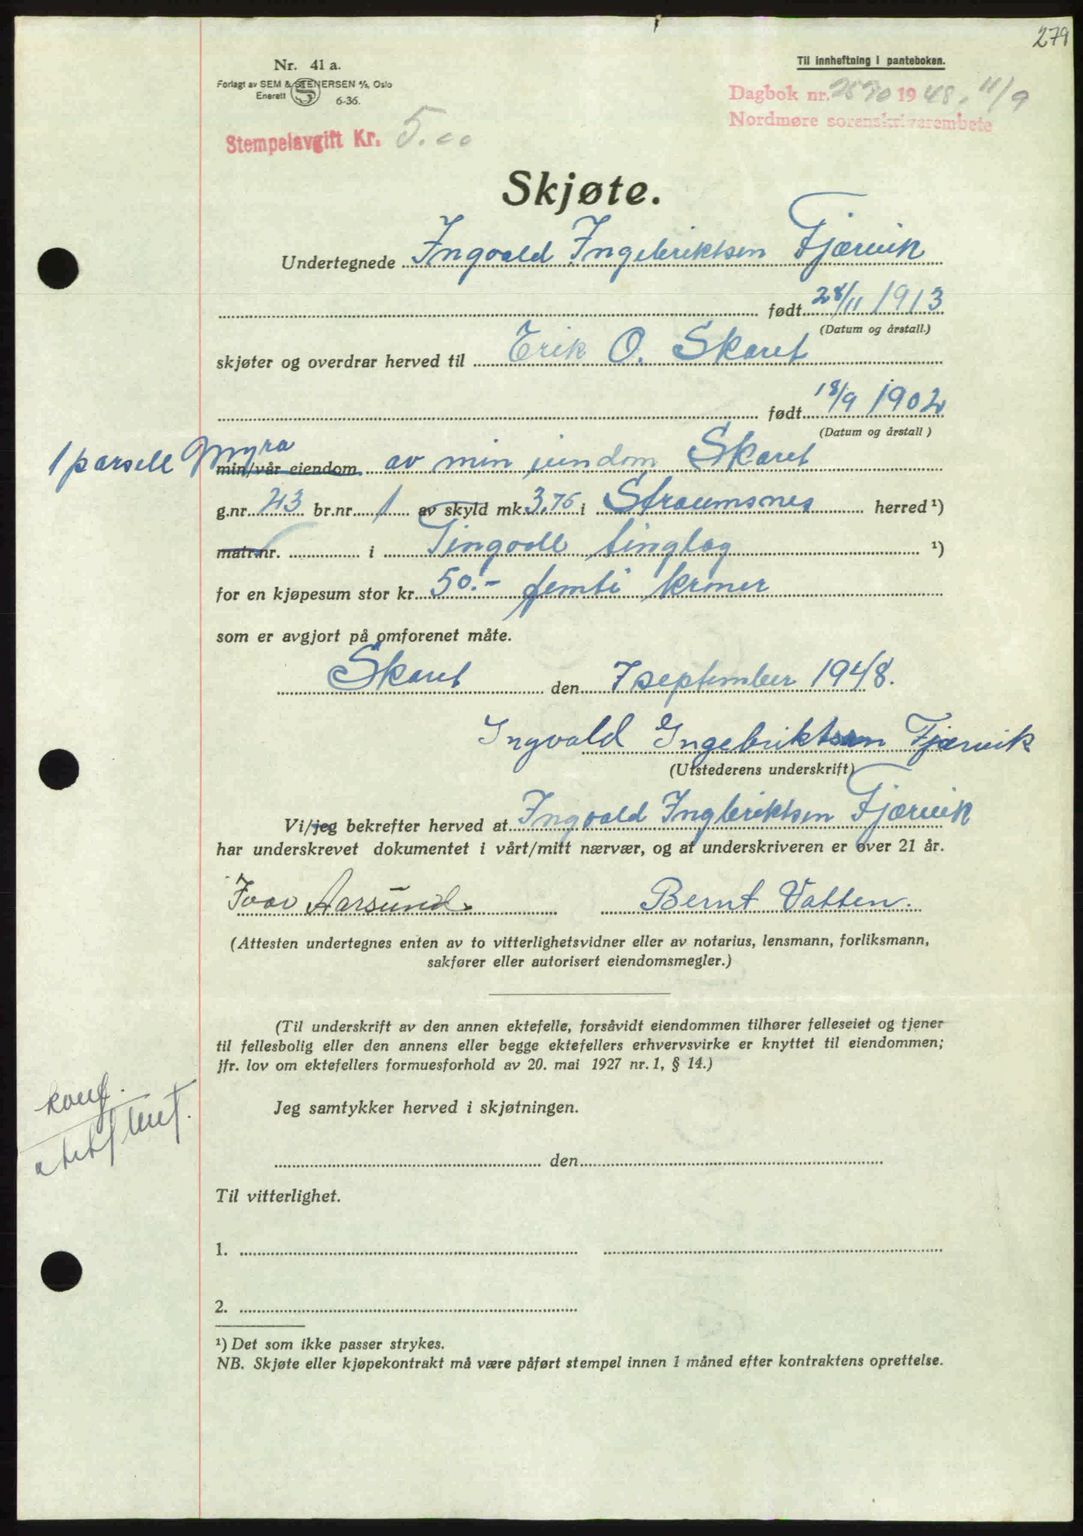 279
Nr. 41 a.
Forlagt av SEM & STENERSEN A/S, Oslo
Enerett S 6-36.
Til innheftning i panteboken.
Dagbok nr. 2570 1948. 11/9
Nordmøre sorenskriverembete
Stempelavgift Kr. 5.00
Skjøte.
Undertegnede Ingvald Ingebriktsen Fjærvik
født 28/11 1913
(Datum og årstall.)
skjøter og overdrar herved til Erik O. Skaret
født 18/9 1902
(Datum og årstall)
1 parsell Myra min/vår eiendom av min eiendom Skaret
g.nr. 43 br.nr. 1 av skyld mk. 3,75 i Straumsnes herred ¹)
matr.nr. i Tingvoll tinglag ¹)
for en kjøpesum stor kr. 50.- femti kroner
som er avgjort på omforenet måte.
Skaret den 7 september 1948.
Ingvald Ingebriktsen Fjærvik
(Utstederens underskrift)
Vi/jeg bekrefter herved at Ingvald Ingbriktsen Fjærvik
har underskrevet dokumentet i vårt/mitt nærvær, og at underskriveren er over 21 år.
Ivar Aarsund. Bernt Vatten.
(Attesten undertegnes enten av to vitterlighetsvidner eller av notarius, lensmann, forliksmann,
sakfører eller autorisert eiendomsmegler.)
(Til underskrift av den annen ektefelle, forsåvidt eiendommen tilhører felleseiet og tjener
til fellesbolig eller den annens eller begge ektefellers erhvervsvirke er knyttet til eiendommen;
jfr. lov om ektefellers formuesforhold av 20. mai 1927 nr. 1, § 14.)
Jeg samtykker herved i skjøtningen.
konf.
den
Til vitterlighet.
1.
2.
¹) Det som ikke passer strykes.
NB. Skjøte eller kjøpekontrakt må være påført stempel innen 1 måned efter kontraktens oprettelse.